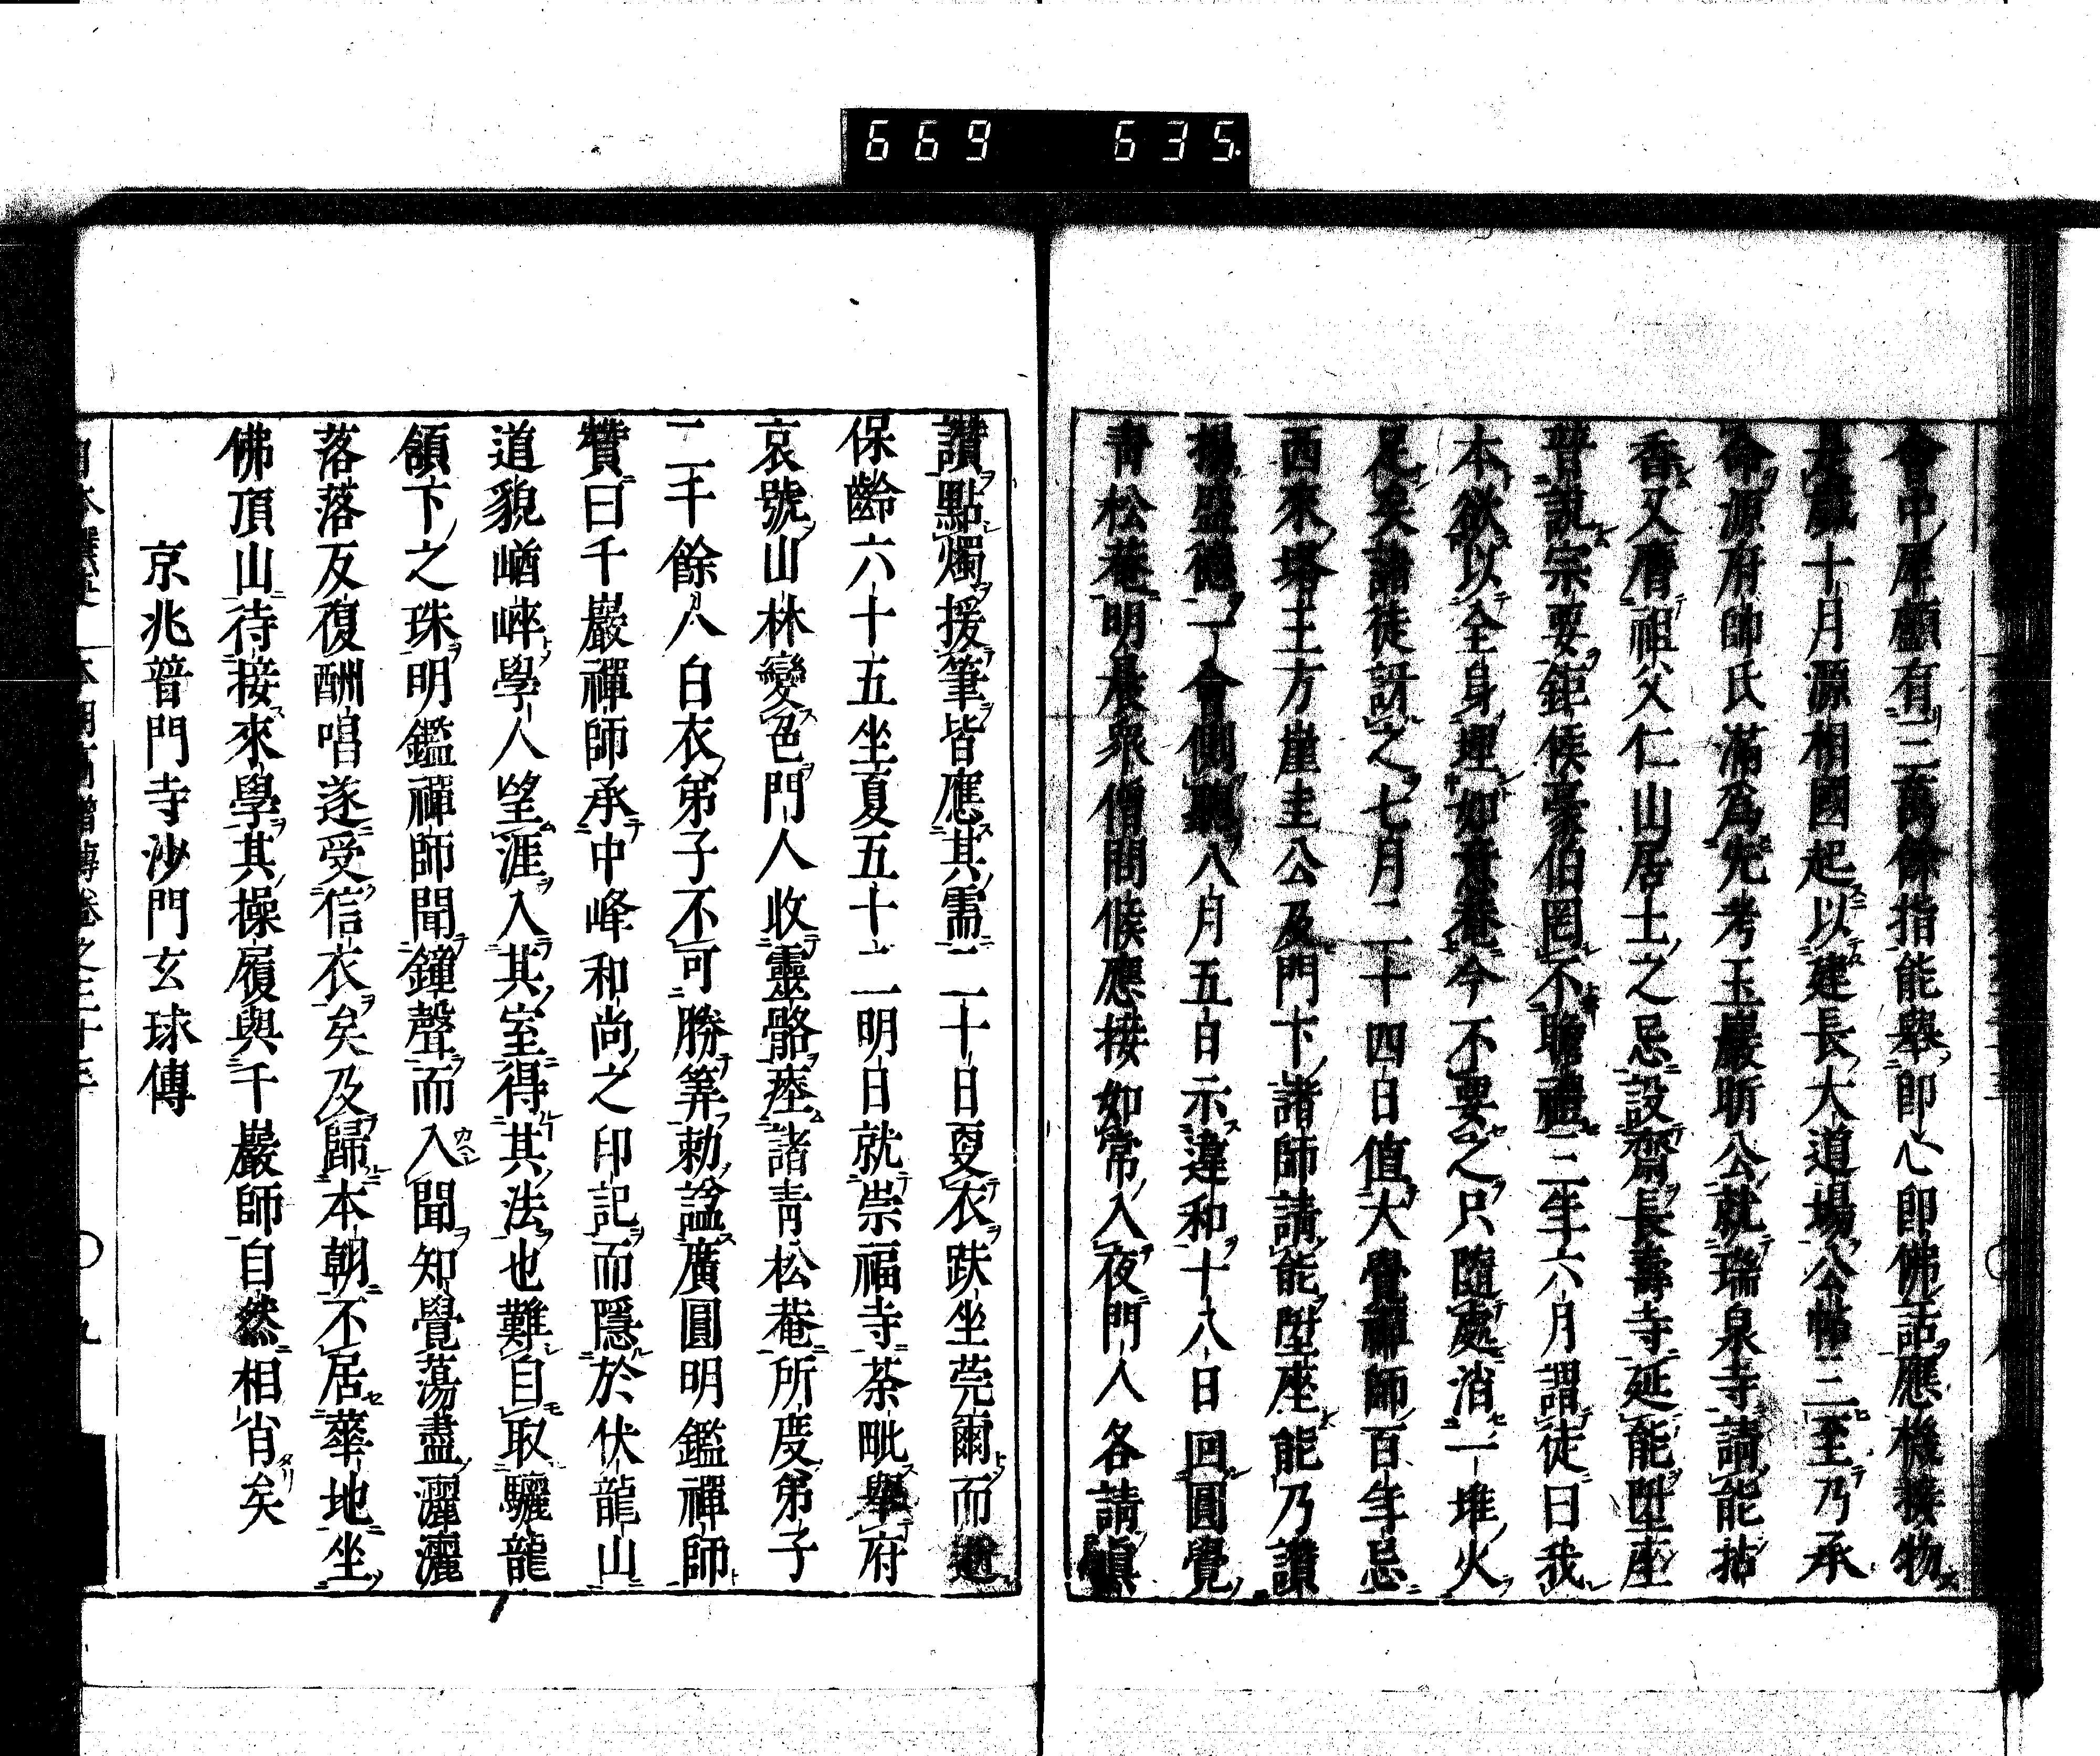 669 635
會中犀顱有三萬餘指能舉即心即佛話應機接物
是歲十月源相國起以建長大道場公帖三至乃承
命源府帥氏滿爲先考玉巖昕公就瑞泉寺請能拈
香又膺祖父仁山居士之忌設齋長壽寺延能陞座
普說宗要鉅侯豪伯罔不瞻禮三年六月謂徒曰我
本欲以全身埋如意菴今不要之只隨處消一堆火
足矣諸徒訝之七月二十四日值大覺禪師百年忌
西來塔主方崖圭公及門下諸師請能陞座能乃讚
揚盛德一會傾聽八月五日示違和十八日回圓覺
青松菴明晨衆僧問候應接如常入夜門人各請眞
讚點燭援筆皆應其需二十日更衣趺坐莞爾而逝
保齡六十五坐夏五十二明日就崇福寺荼毗舉府
哀號山林變色門人收靈骼塟諸青松菴所度弟子
二千餘人白衣弟子不可勝筭勅諡廣圓明鑑禪師
贊曰千巖禪師承中峰和尚之印記而隱於伏龍山
道貌崷崪學人望涯入其室得其法也難自取驪龍
頷下之珠明鑑禪師聞鐘聲而入聞知覺蕩盡灑灑
落落反復酬唱遂受信衣矣及歸本朝不居華地坐
佛頂山待接來學其操履與千巖師自然相肖矣
京兆普門寺沙門玄球傳
本朝高僧傳卷之三十五 九